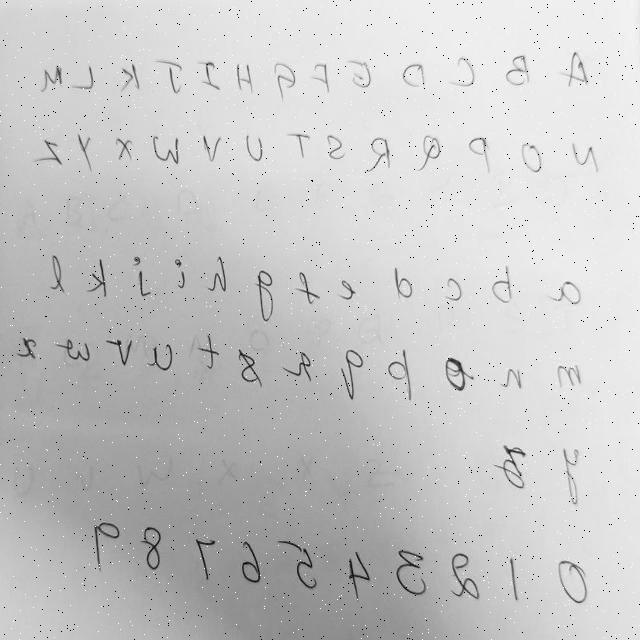 A B C D E F G H I J K L M
N O P Q R S T U V W X Y Z
a b c d e f g h i j k l
m n o p q r s t u v w x
y z
0 1 2 3 4 5 6 7 8 9